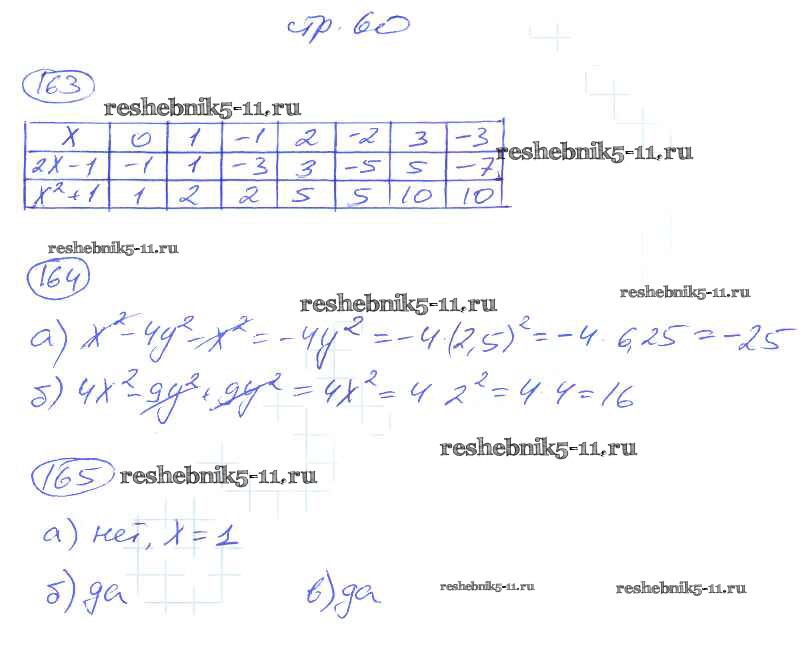 стр. 60
163
reshebnik5-11.ru
x 0 1 -1 2 -2 3 -3
2x-1 -1 1 -3 3 -5 5 -7
x²+1 1 2 2 5 5 10 10
reshebnik5-11.ru
reshebnik5-11.ru
164
reshebnik5-11.ru
reshebnik5-11.ru
а) x² - 4y² - x² = -4y² = -4·(2,5)² = -4 · 6,25 = -25
б) 4x² - 9y² + 9y² = 4x² = 4 2² = 4·4 = 16
reshebnik5-11.ru
165 reshebnik5-11.ru
а) нет, x = 1
б) да в) да
reshebnik5-11.ru reshebnik5-11.ru